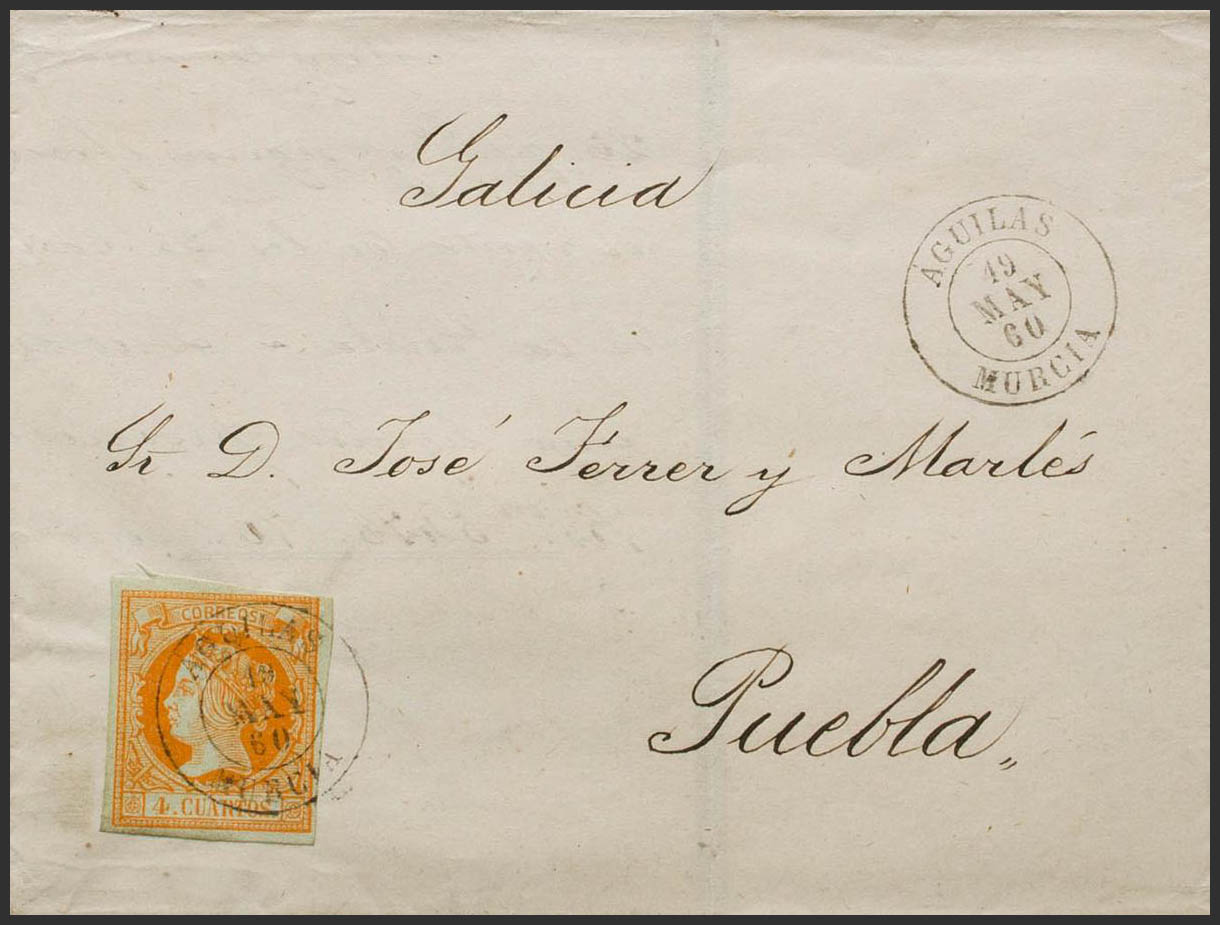 Galicia
ÁGUILAS
19
MAY
60
MURCIA
Sr D. José Ferrer y Marlés
Puebla„
CORREOS
AGUILAS
19
MAY
60
MURCIA
4. CUARTOS